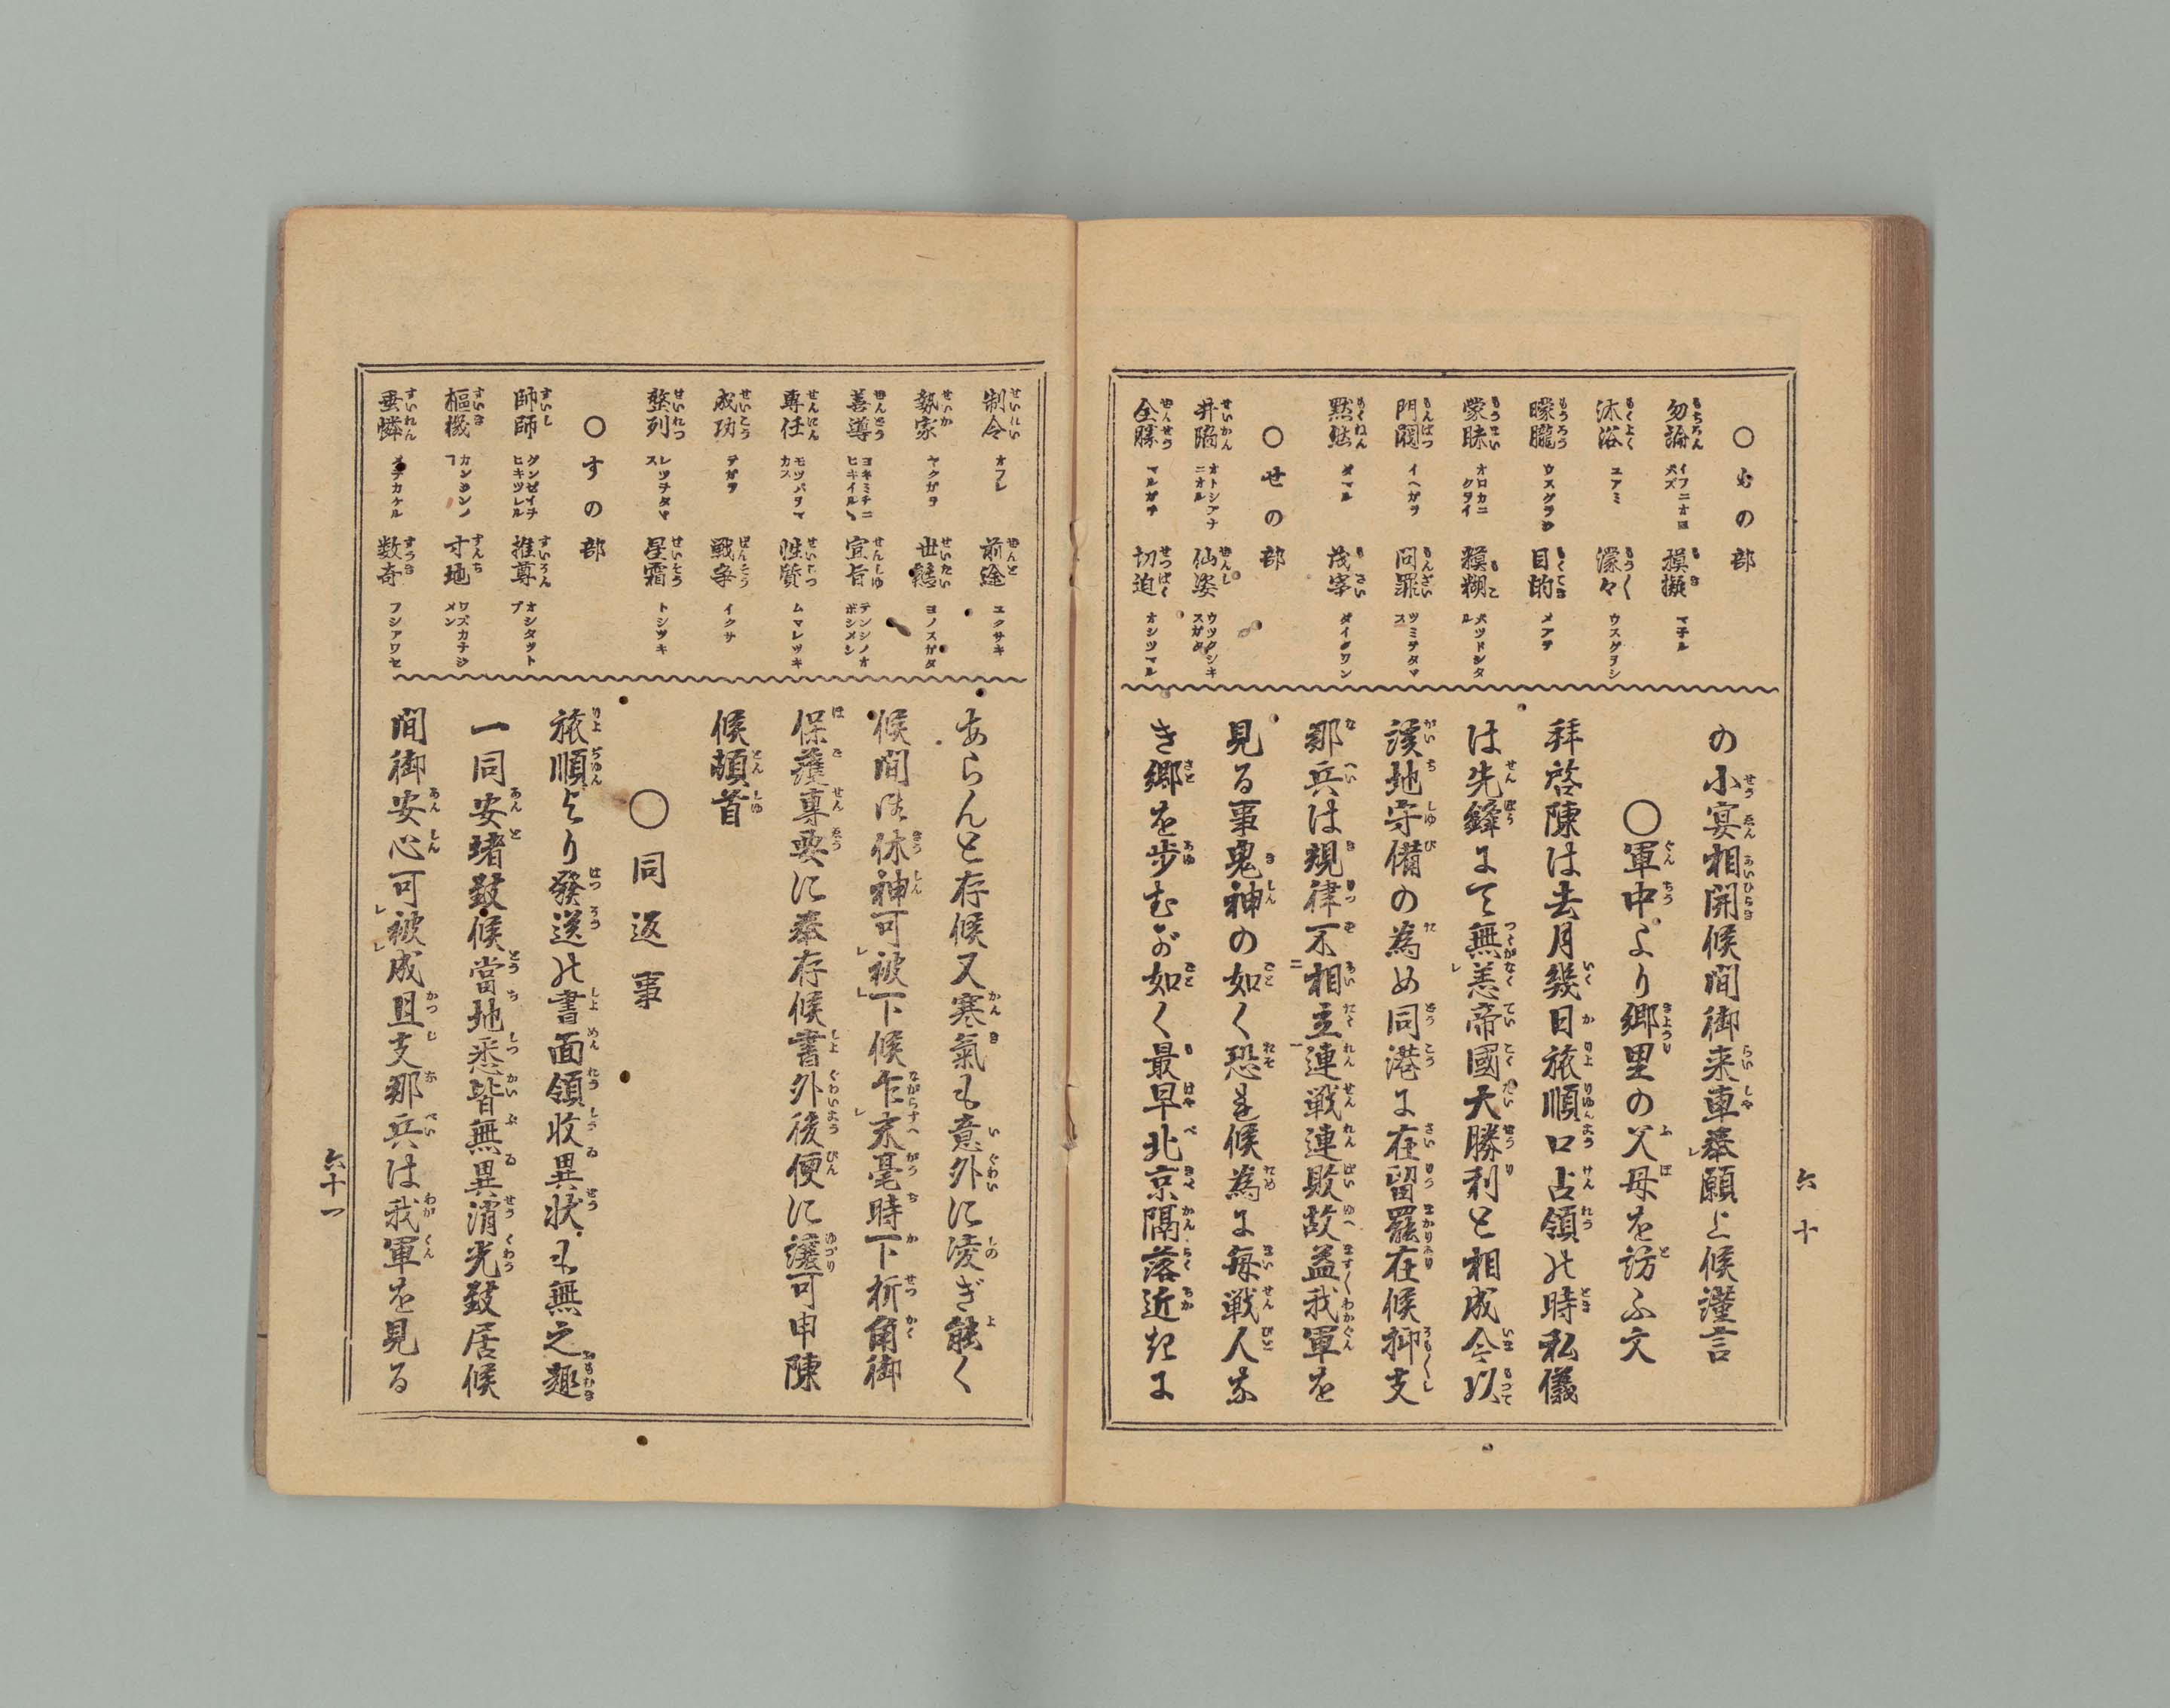 ○もの部
勿論 イフニオヨバズ 模擬 マネル
沐浴 ユアミ 濛々 ウスグラシ
朦朧 ウスグラシ 目的 メアテ
蒙昧 オロカニクライ 模糊
門閥 イヘガラ 問罪 ツミヲタダス
黙然 ダマル 茂宰 ダイクワン
○せの部
井陥 オトシアナニオル 仙姿 ウツクシキスガタ
全勝 マルガチ 切迫 オシツマル
の小宴相開候間御来車奉願上候謹言
○軍中より郷里の父母を訪ふ文
拝啓陳は去月幾日旅順口占領の時私儀
は先鋒にて無恙帝國大勝利と相成今以
該地守備の為め同港に在留罷在候抑支
那兵は規律不相立連戦連敗故益我軍を
見る事鬼神の如く恐れ候為に毎戦人な
き郷を歩むが如く最早北京陥落近きに
六十
制令 オフレ 前途 ユクサキ
執家 ヤクガラ 世態 ヨノスガタ
善導 ヨキミチニヒキイルヽ 宣旨 テンシノオボシメシ
専任 モツパラマカス 性質 ムマレツキ
成功 テガラ 戦争 イクサ
整列 レツヲタダス 星霜 トシツキ
○すの部
帥師 グンゼイヲヒキツレル 推尊 オシタツトブ
樞機 カンジンノコ 寸地 ワズカチメン
垂憐 メヲカケル 数奇 フシアワセ
あらんと存候又寒氣も意外に凌ぎ能く
候間は休神可被下候乍末毫時下折角御
保護専要に奉存候書外後便に譲可申陳
候頓首
○同返事
旅順より發送の書面領收異状も無之趣
一同安堵致候當地悉皆無異消光致居候
間御安心可被成且支那兵は我軍を見る
六十一